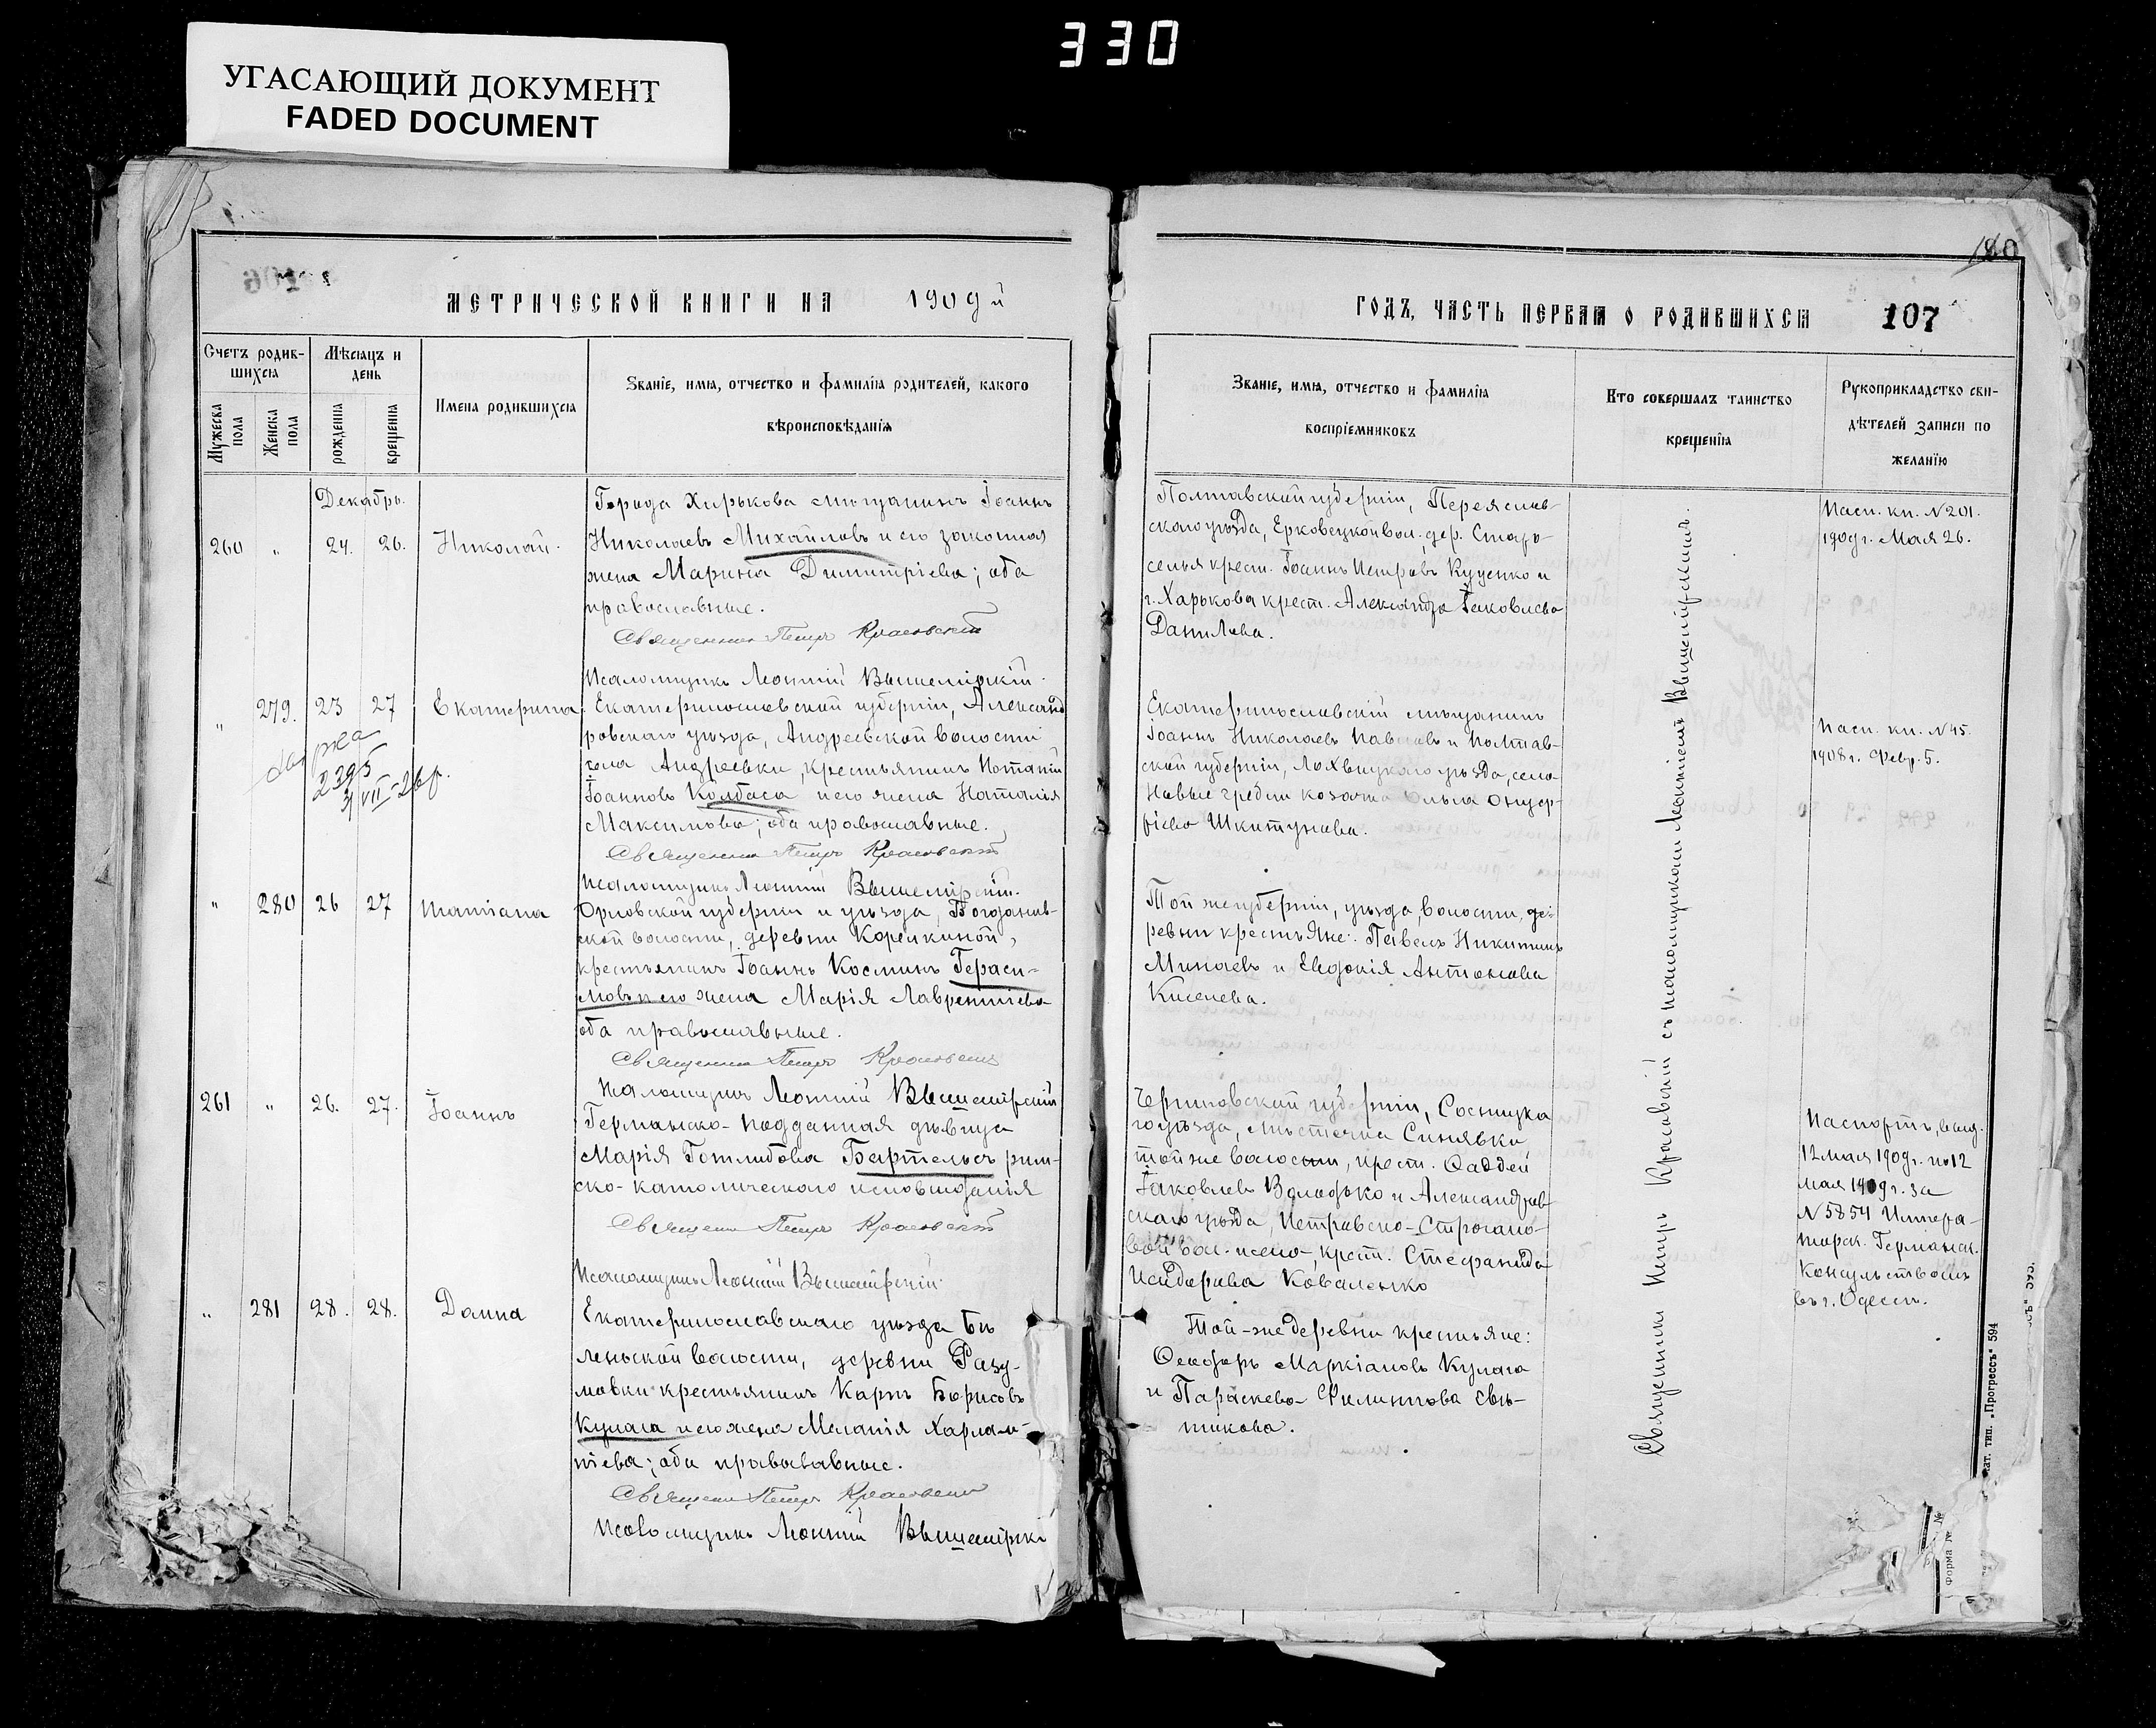 330
УГАСАЮЩИЙ ДОКУМЕНТ
FADED DOCUMENT
180
МЕТРИЧЕСКОЙ КНИГИ НА 1909 й
Счетъ родив-
шихся
Мѣсяцъ и
день
Мужеска
пола
Женска
пола
рожденія
крещенія
Имена родившихся
Званіе, имя, отчество и фамилія родителей, какого
вѣроисповѣданія
Декабрь.
260 " 24. 26. Николай.
Города Харькова мѣщанинъ Іоаннъ
Николаевъ Михайловъ и его законная
жена Марина Димитріева; оба
православные.
Священникъ Петръ Красовскій
Псаломщикъ Леонтій Вышемірскій.
" 279. 23 27 Екатерина
справка
2395
VII-26г.
Екатеринославской губерніи, Александ
ровскаго уѣзда, Андреевской волости
села Андреевки, крестьянинъ Потапій
Іоанновъ Колбаса и его жена Наталія
Максимова; оба православные.
Священникъ Петръ Красовскій
Псаломщикъ Леонтій Вышемірскій.
" 280 26 27 Татіана
Орловской губерніи и уѣзда, Богданов-
ской волости, деревни Корелкиной,
крестьянинъ Іоаннъ Косминъ Гераси-
мовъ и его жена Марія Лаврентіева
оба православные.
Священникъ Петръ Красовскій
Псаломщикъ Леонтій Вышемірскій
261 " 26. 27. Іоаннъ
Германско-подданная дѣвица
Марія Готлибова Бартельсъ рим-
ско-католическаго исповѣданія
Священникъ Петръ Красовскій
Псаломщикъ Леонтій Вышемірскій.
" 281 28. 28. Домна
Екатеринославскаго уѣзда Бѣ
леньской волости, деревни Разу-
мовки крестьянинъ Карпъ Борисовъ
Кулага и его жена Меланія Харлам-
піева; оба православные.
Священникъ Петръ Красовскій
Псаломщикъ Леонтій Вышемірскі
ГОДЪ, ЧАСТЬ ПЕРВАЯ О РОДИВШИХСЯ 107
Званіе, имя, отчество и фамилія
воспріемниковъ
Кто совершалъ таинство
крещенія
Рукоприкладство сви-
дѣтелей записи по
желанію
Полтавской губерніи, Переяслав-
скаго уѣзда, Ерковецкой вол. дер. Старо-
селья крест. Іоаннъ Петровъ Куценко и
г. Харькова крест. Александра Іаковлева
Данилова.
Пасп. кн. N 201.
1909г. Мая 26.
Екатеринославскій мѣщанинъ
Іоаннъ Николаевъ Павловъ и Полтав-
ской губерніи, Лохвицкаго уѣзда, села
Новые гребли козачка Ольга
Пасп. кн. N 45.
1908г. Февр. 5.
Той же губерніи, уѣзда, волости, де-
ревни крестьяне: Павелъ Никитинъ
Минаевъ и Евдокія Антонова
Киселева.
Черниговской губерніи, Сосницка
го уѣзда, мѣстечка Синявки
той же волости, крест. Фаддей
Іаковлевъ Володько и Александров-
скаго уѣзда, Петровско-
вой вол. крест. Стефанида
Исидорова Коваленко
Паспортъ, выд.
12 мая 1909г. по 12
мая 1909г. за
N 5854 Импера-
торск. Германск.
Консульствомъ
въ г. Одессѣ.
Той-же деревни крестьяне:
Ѳеодоръ Маркіановъ Кулага
и Параскева Филиппова Свѣ-
тикова.
Священникъ Петръ Красовскій съ псаломщикомъ Леонтіемъ Вышемірскимъ.
ат. тип. „Прогрессъ“ 594
Форма №